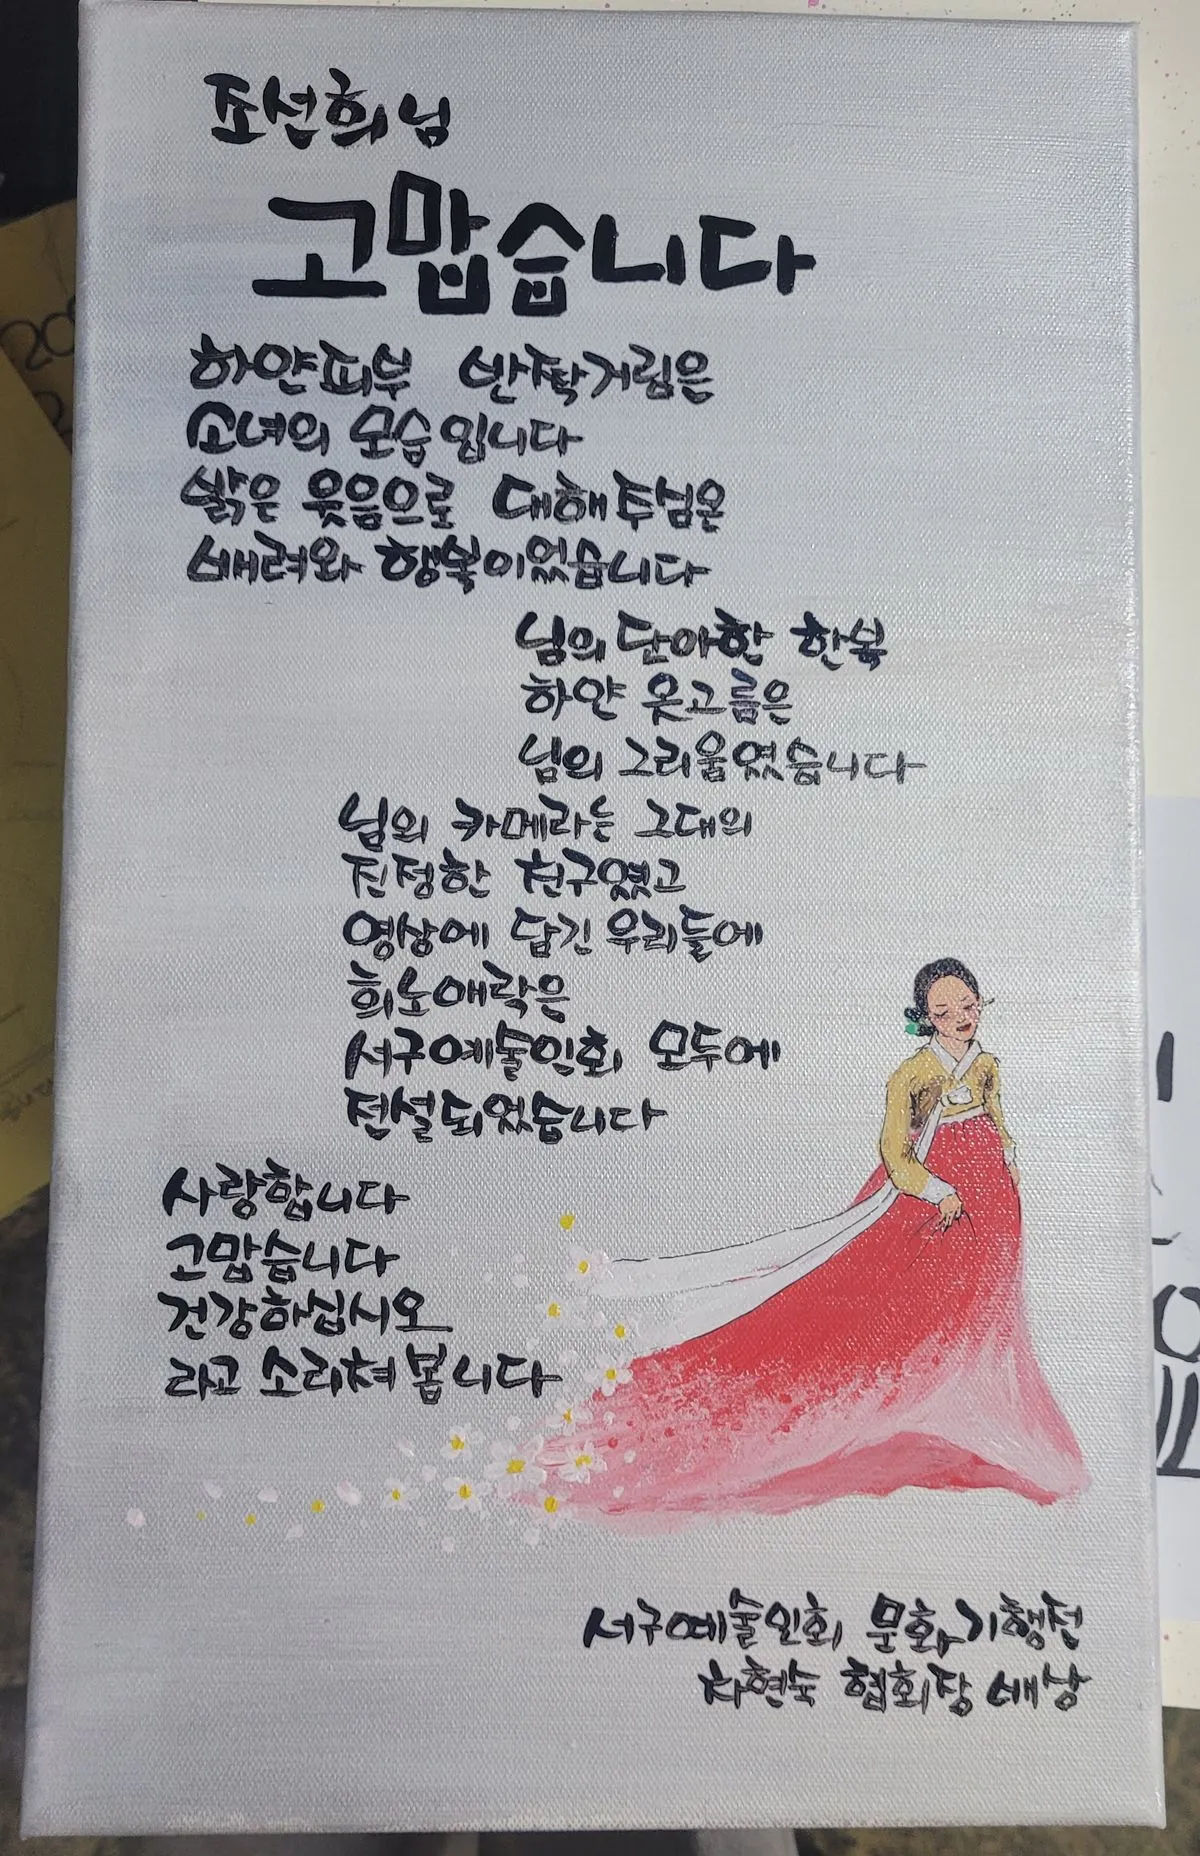 조선희님
고맙습니다
하얀피부 반짝거림은
소녀의 모습입니다
밝은 웃음으로 대해주심은
배려와 행복이었습니다
님의 단아한 한복
하얀 옷고름은
님의 그리움였습니다
님의 카메라는 그대의
진정한 친구였고
영상에 담긴 우리들에
희노애락은
서구예술인회 모두에
전설되었습니다
사랑합니다
고맙습니다
건강하십시오
라고 소리쳐 봅니다
서구예술인회 문화기행전
차현숙 협회장 배상